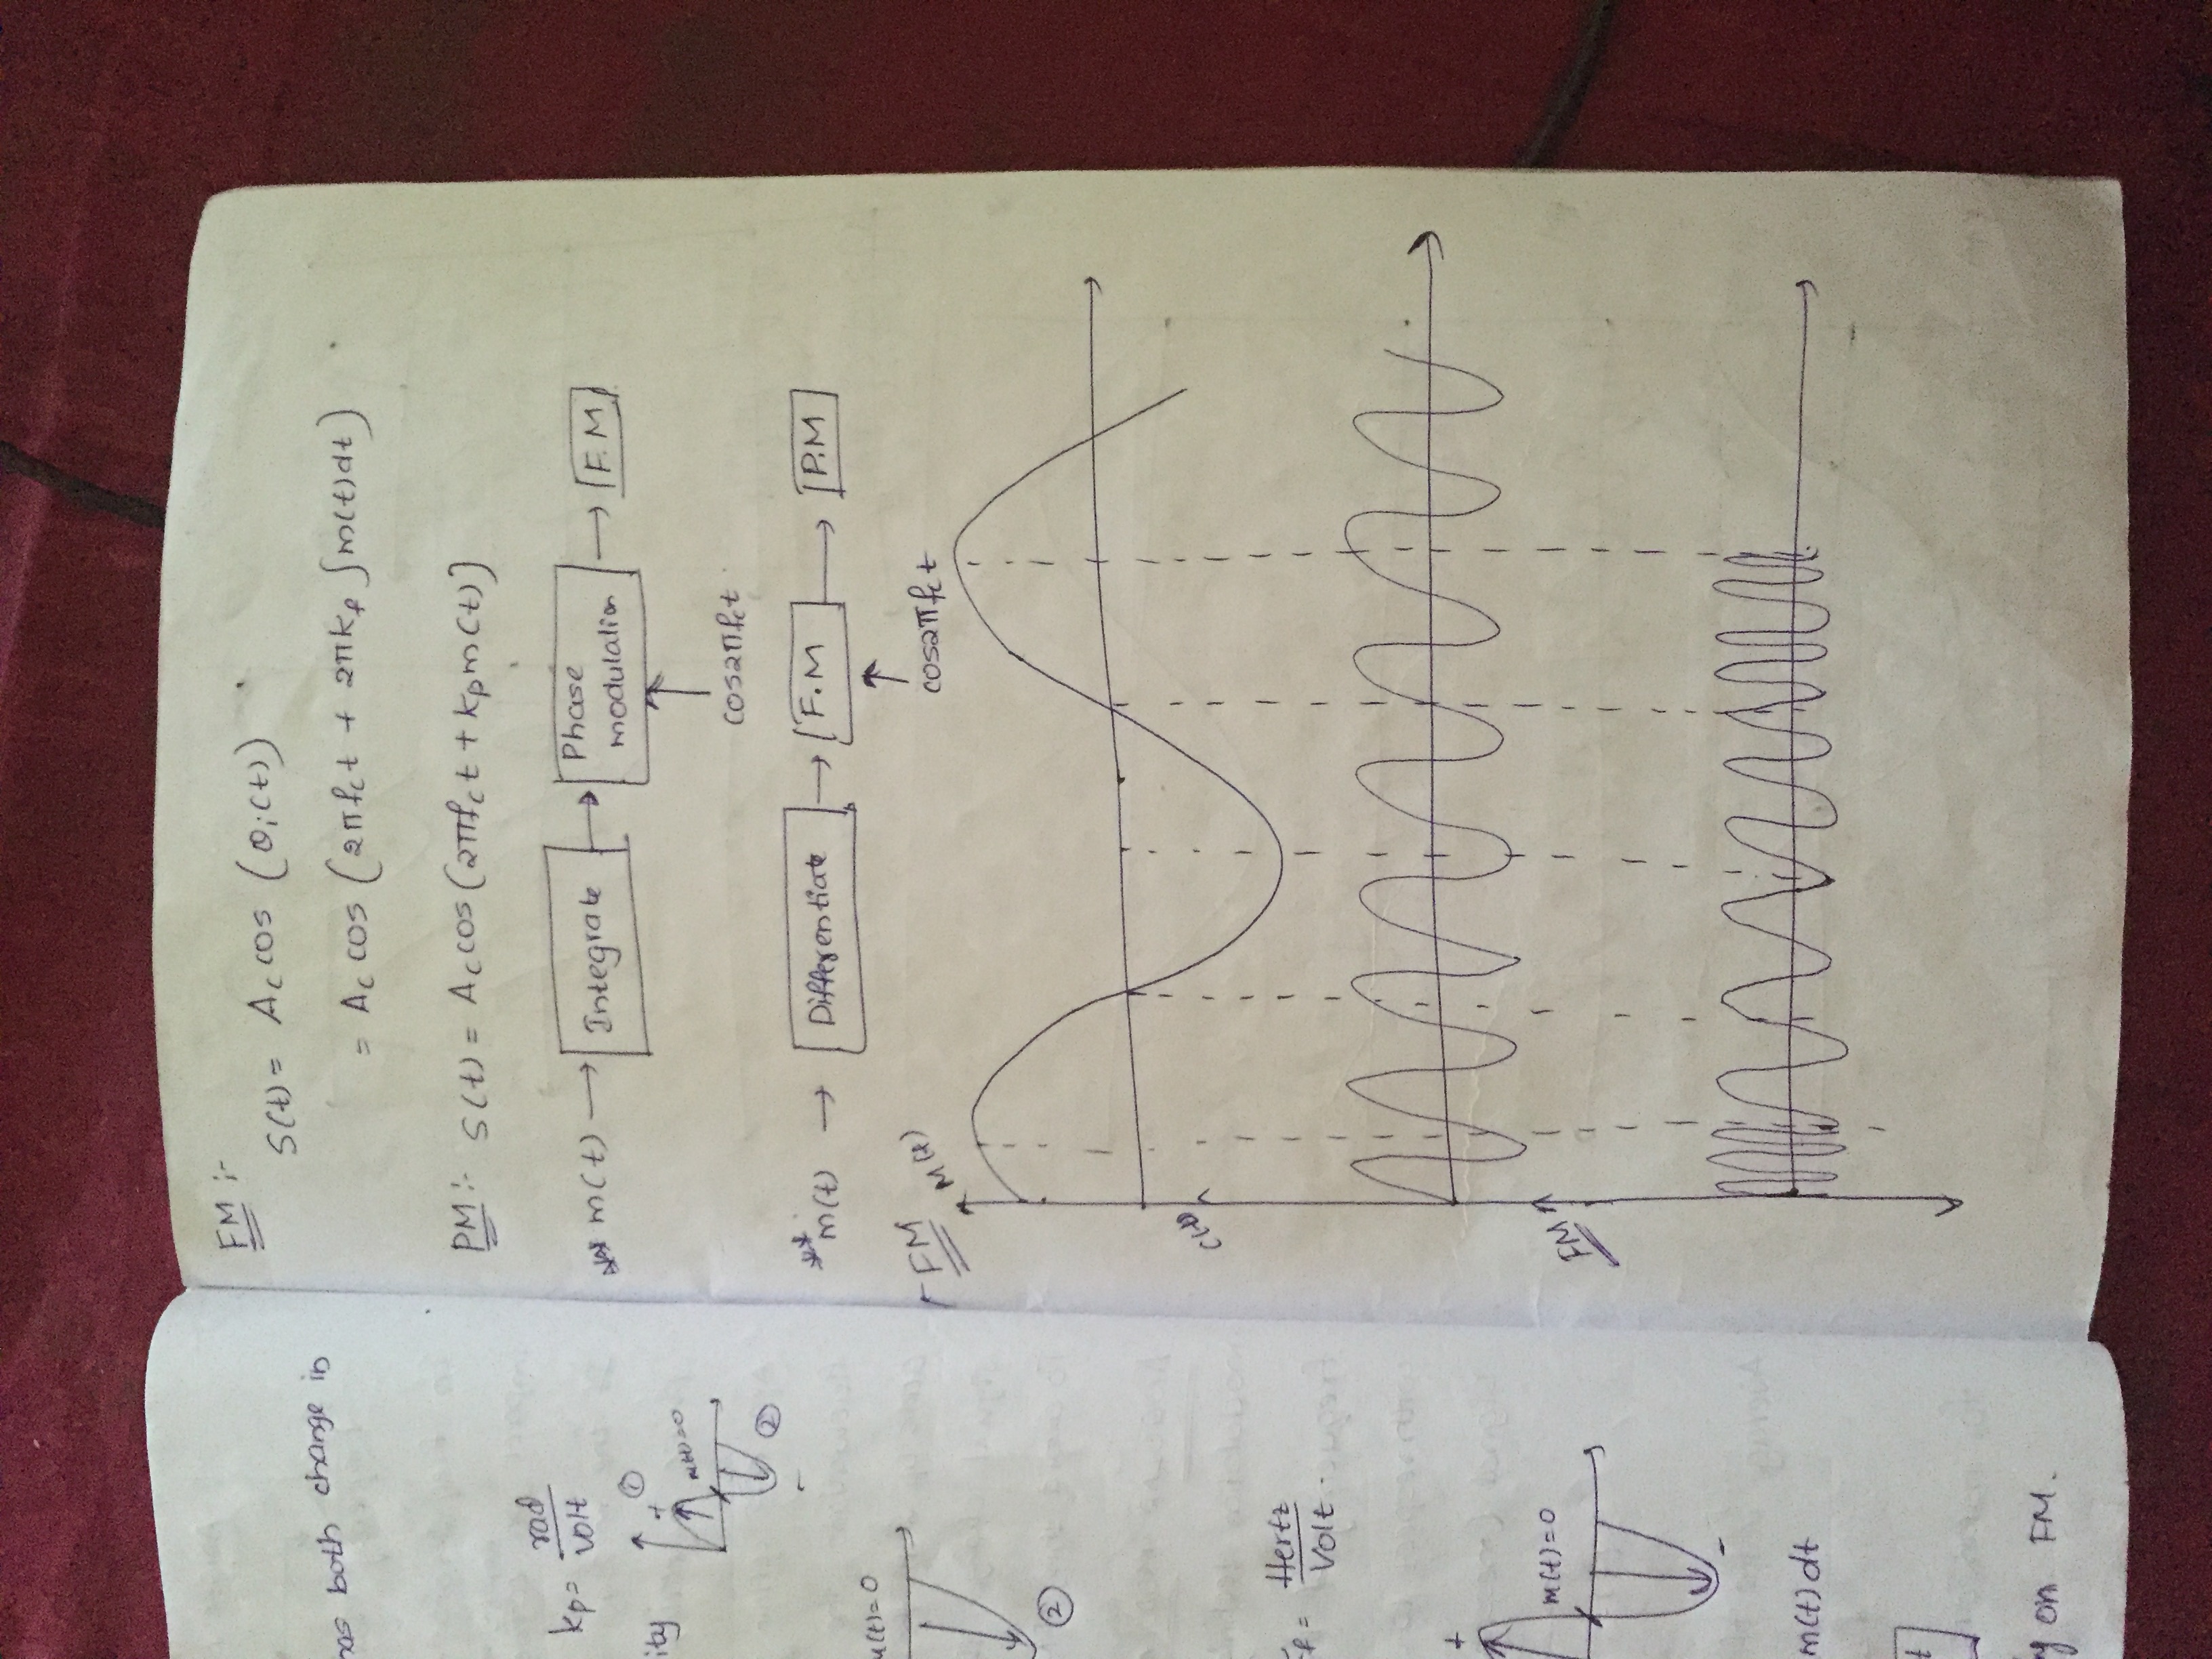 has both change in
kp = rad/Volt
ity
①
+
m(t)=0
②
-
m(t)=0
②
= Hertz/Volt.
+
m(t)=0
-
m(t)dt
t
on FM.
FM :-
S(t) = Ac cos (θi(t))
= Ac cos (2πfct + 2πkf ∫m(t)dt)
PM :- S(t) = Ac cos (2πfct + kpm(t)]
** m(t) → Integrate → Phase modulation → F.M
cos2πfct
** m(t) → Differentiate → F.M → P.M
cos2πfct
FM
M(t)
C(t)
FM